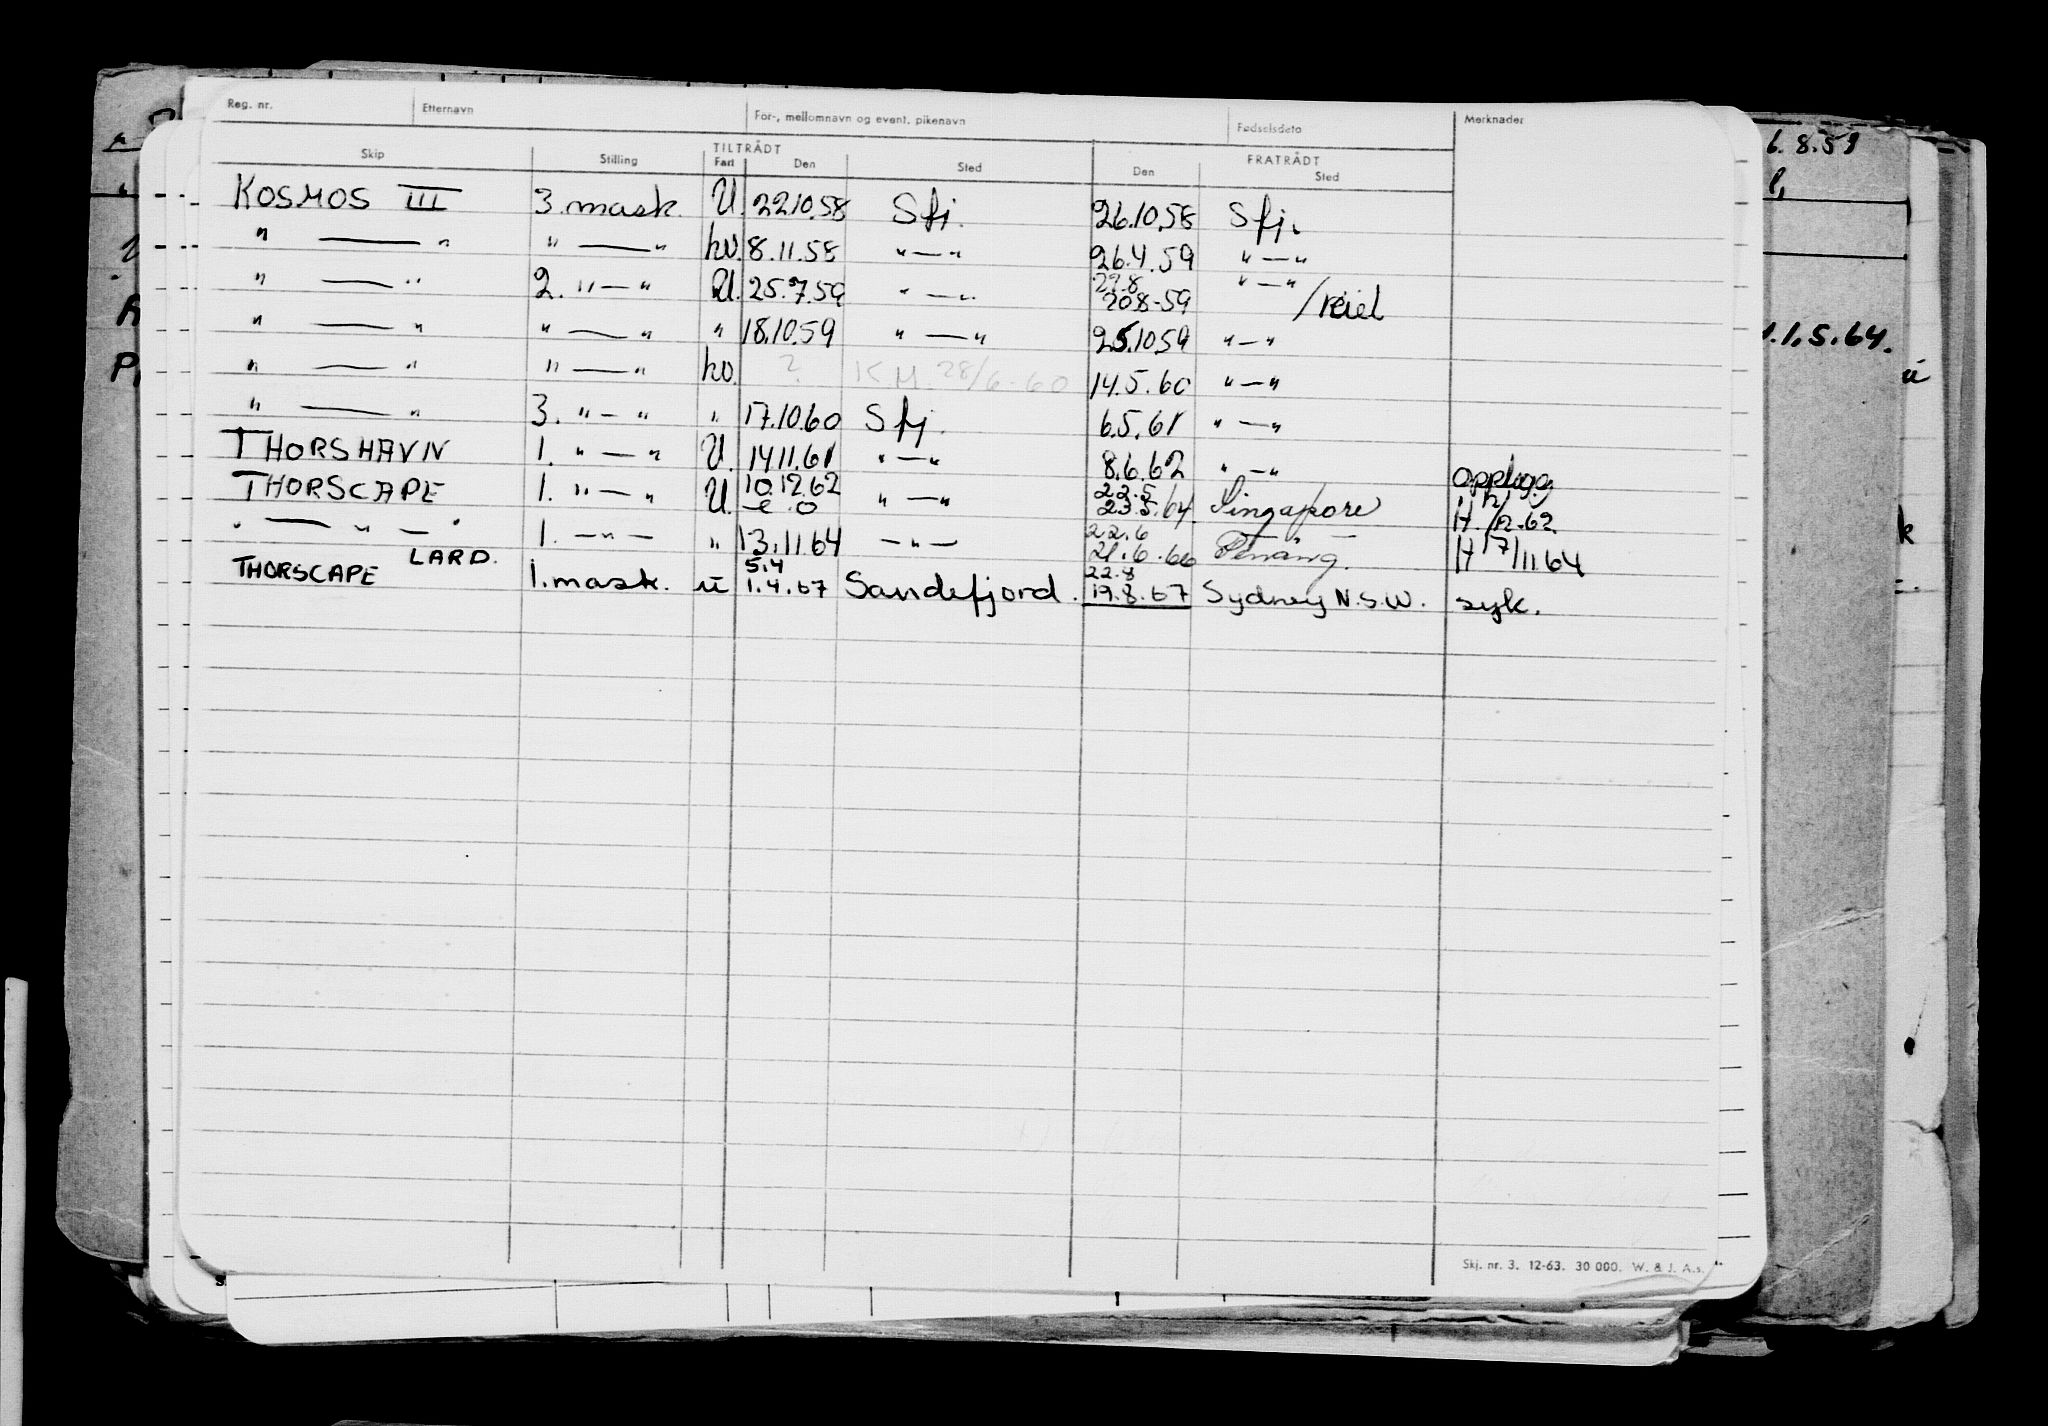 Reg. nr. Etternavn For-, mellomnavn og event. pikenavn Fødselsdato Merknader
TILTRÅDT FRATRÅDT
Skip Stilling Fart Den Sted Den Sted
KOSMOS III 3. mask. U. 22.10.58 Sfj. 26.10.58 Sfj.
" — " " — " hv. 8.11.58 " — " 26.4.59 " — "
" — " 2. " — " U. 25.7.59 " — " 27.8 20.8-59 " — "
" — " " — " " 18.10.59 " — " 25.10.59 " — "
" — " " — " hv. ? K M 28/6-60 14.5.60 " — "
" — " 3. " — " " 17.10.60 Sfj. 6.5.61 " — "
THORSHAVN 1. " — " U. 14.11.61 " — " 8.6.62 " — "
THORSCAPE 1. " — " U. 10.12.62 " — " 22.5 23.5.64 Singapore H. /12-62
" — " — " 1. — " — " 13.11.64 — " — 22.6 21.6.66 Penang. H 17/11 64
LARD.
THORSCAPE 1. mask. u 5.4 1.4.67 Sandefjord. 22.8 19.8.67 Sydney N.S.W. syk.
Skj. nr. 3. 12-63. 30 000. W. & J. A.s.
6.8.59
1.5.64.